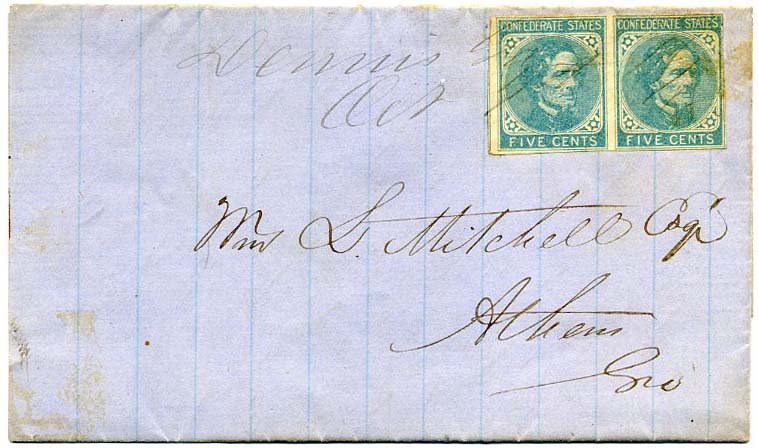 CONFEDERATE STATES CONFEDERATE STATES
FIVE CENTS FIVE CENTS
Dennis
Oct
Wm L. Mitchell Esqr
Athens
Geo